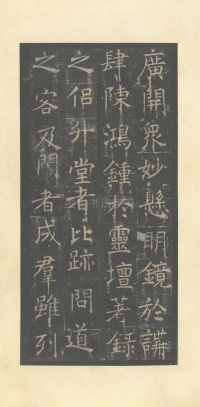 廣開衆妙懸明鏡於講
肆陳鴻鍾於靈壇著録
之侣升堂者比跡問道
之客及門者成羣雖列